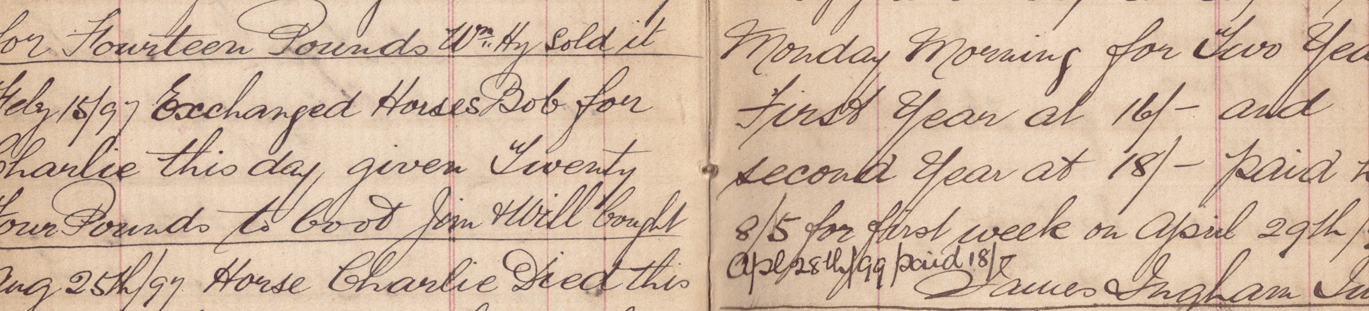 for Fourteen Pounds Wm. Hy sold it
Feby 15/97 Exchanged Horses Bob for
Charlie this day given Twenty
Four Pounds to boot Jim & Will bought
Aug 25th/97 Horse Charlie Died this
Monday Morning for Two Yea
First Year at 16/- and
second Year at 18/- paid
8/5 for first week on April 29th
Apl 28th/99 paid 18/-
James Ingham